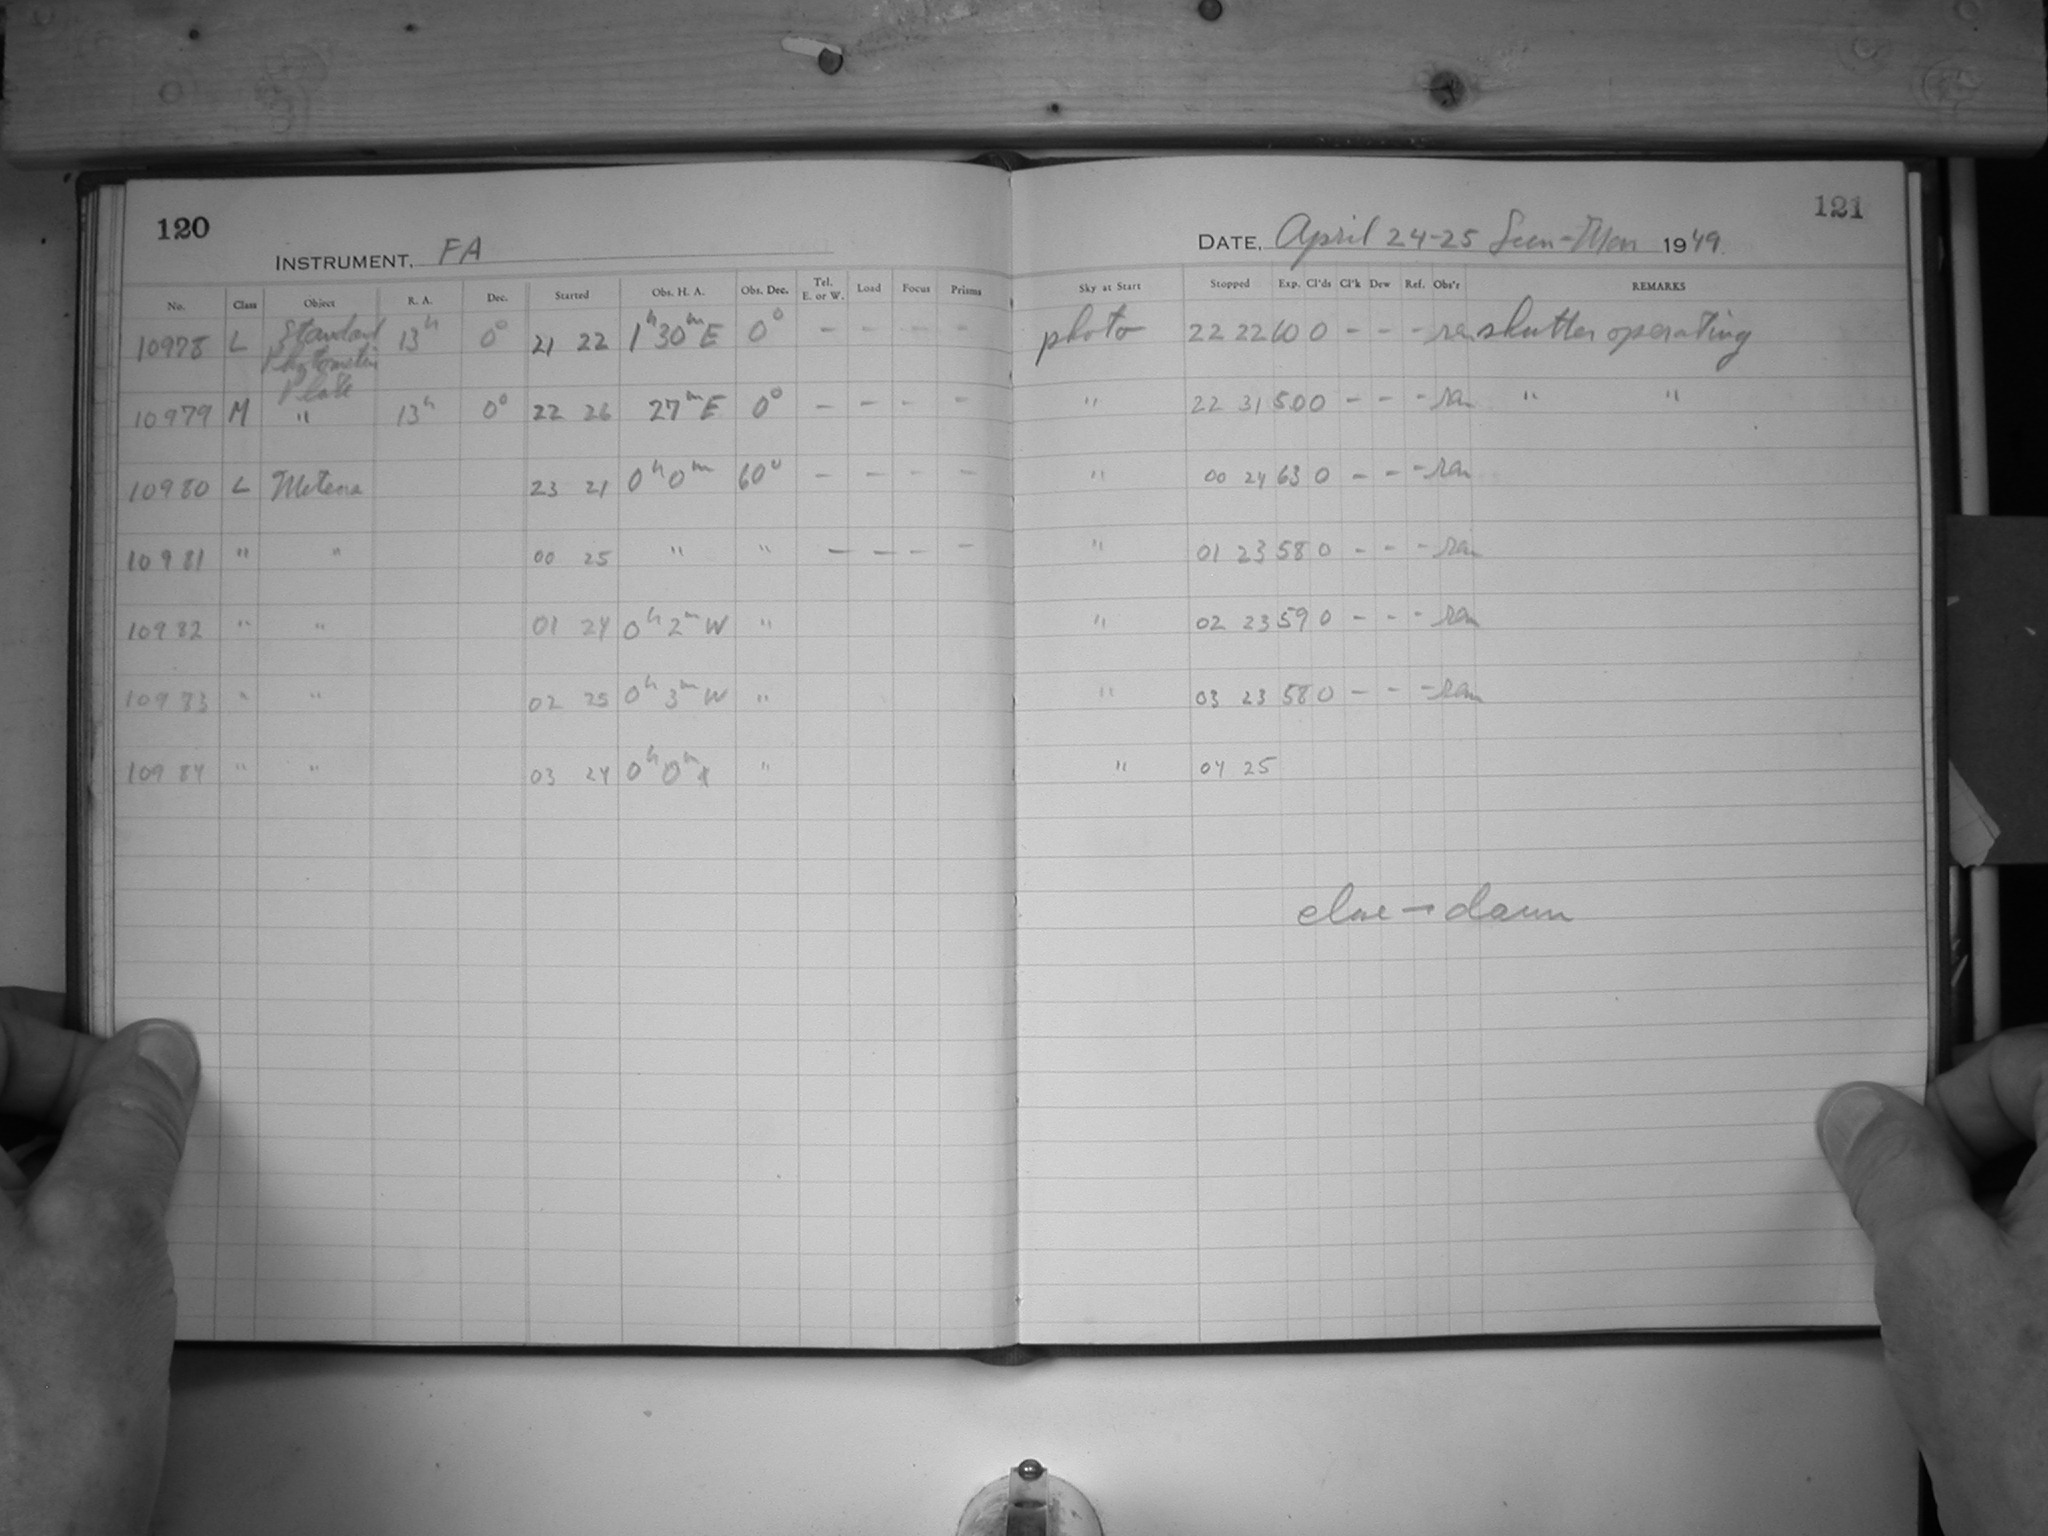 120
INSTRUMENT, FA
No. Class Object R. A. Dec. Started Obs. H. A. Obs. Dec. Tel. E. or W. Load Focus Prisms
10978 L Standard 13h 0° 21 22 1h30mE 0° - - - -
Plate
10979 M " 13h 0° 22 26 27mE 0° - - - -
10980 L Meteor 23 21 0h0m 60° - - - -
10981 " " 00 25 " " - - - -
10982 " " 01 24 0h2mW "
10983 " " 02 25 0h3mW "
10984 " " 03 24 0h0m "
121
DATE, April 24-25 Sun-Mon 1949
Sky at Start Stopped Exp. Cl'ds Cl'k Dew Ref. Obs'r REMARKS
photo 22 22 60 0 - - - ra shutter operating
" 22 31 5.0 0 - - - ra " "
" 00 24 63 0 - - - ra
" 01 23 58 0 - - - ra
" 02 23 59 0 - - - ra
" 03 23 58 0 - - - ra
" 04 25
close - dawn